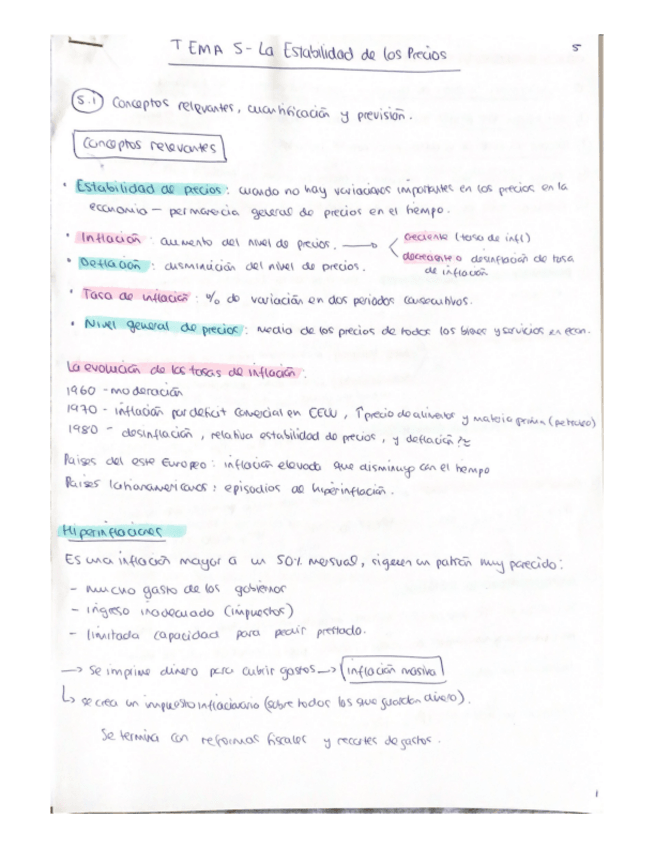 TEMA 5 - La Estabilidad de los Precios
5
5.1 Conceptos relevantes, cuantificación y previsión.
Conceptos relevantes
· Estabilidad de precios: cuando no hay variaciones importantes en los precios en la
economía - permanencia general de precios en el tiempo.
· Inflación: aumento del nivel de precios. → < creciente (tasa de infl)
decreciente o desinflación de tasa
de inflación
· Deflación: disminución del nivel de precios.
· Tasa de inflación: % de variación en dos periodos consecutivos.
· Nivel general de precios: media de los precios de todos los bienes y servicios en econ.
La evolución de las tasas de inflación:
1960 - moderación
1970 - inflación por deficit comercial en EEUU, ↑ precio de alimentos y materia prima (petroleo)
1980 - desinflación, relativa estabilidad de precios, y deflación
Paises del este Europeo: inflación elevada que disminuye con el tiempo
Paises latinoamericanos: episodios de hiperinflación.
Hiperinflaciones
Es una inflación mayor a un 50% mensual, siguen un patrón muy parecido:
- mucho gasto de los gobiernos
- ingreso inadecuado (impuestos)
- limitada capacidad para pedir prestado.
→ Se imprime dinero para cubrir gastos → inflación masiva
↳ se crea un impuesto inflacionario (sobre todos los que guardan dinero).
Se termina con reformas fiscales y recortes de gastos.
1